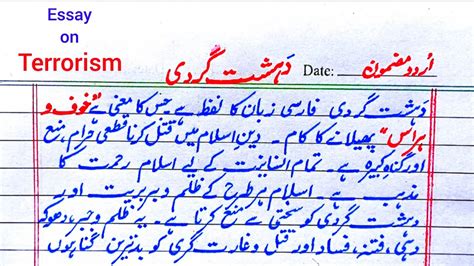 Essay
on
Terrorism
اُردو مضمون
Date:
دَہشت گردی
دَہشت گردی فارسی زبان کا لفظ ہے جس کا معنیٰ ہے "خوف و
ہراس" پھیلانے کا کام۔ دینِ اسلام میں قتل کرنا قطعی حرام، منع
اور گناہِ کبیرہ ہے۔ تمام انسانیت کے لیے اسلام رحمت کا
مذہب ہے۔ اسلام ہر طرح کے ظلم و بربریت اور
دہشت گردی کو سختی سے منع کرتا ہے۔ یہ ظلم و جبر، دھوکہ
دہی، فتنہ، فساد اور قتل و غارت گری کو بدترین گناہوں